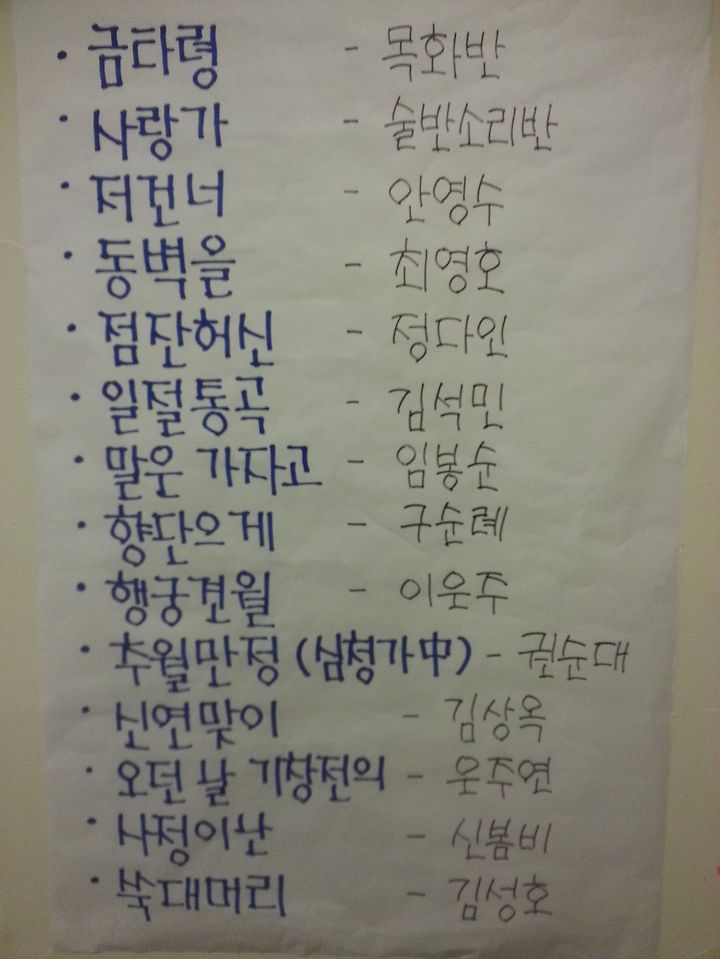 · 금타령 - 목화반
· 사랑가 - 술반소리반
· 저건너 - 안영수
· 동벽을 - 최영호
· 점잔허신 - 정다인
· 일절통곡 - 김석민
· 말은 가자고 - 임봉순
· 향단으게 - 구순례
· 행궁견월 - 이윤주
· 추월만정 (심청가中) - 권순대
· 신연맞이 - 김상옥
· 오던 날 기창전의 - 윤주연
· 사정이난 - 신봄비
· 쑥대머리 - 김성호